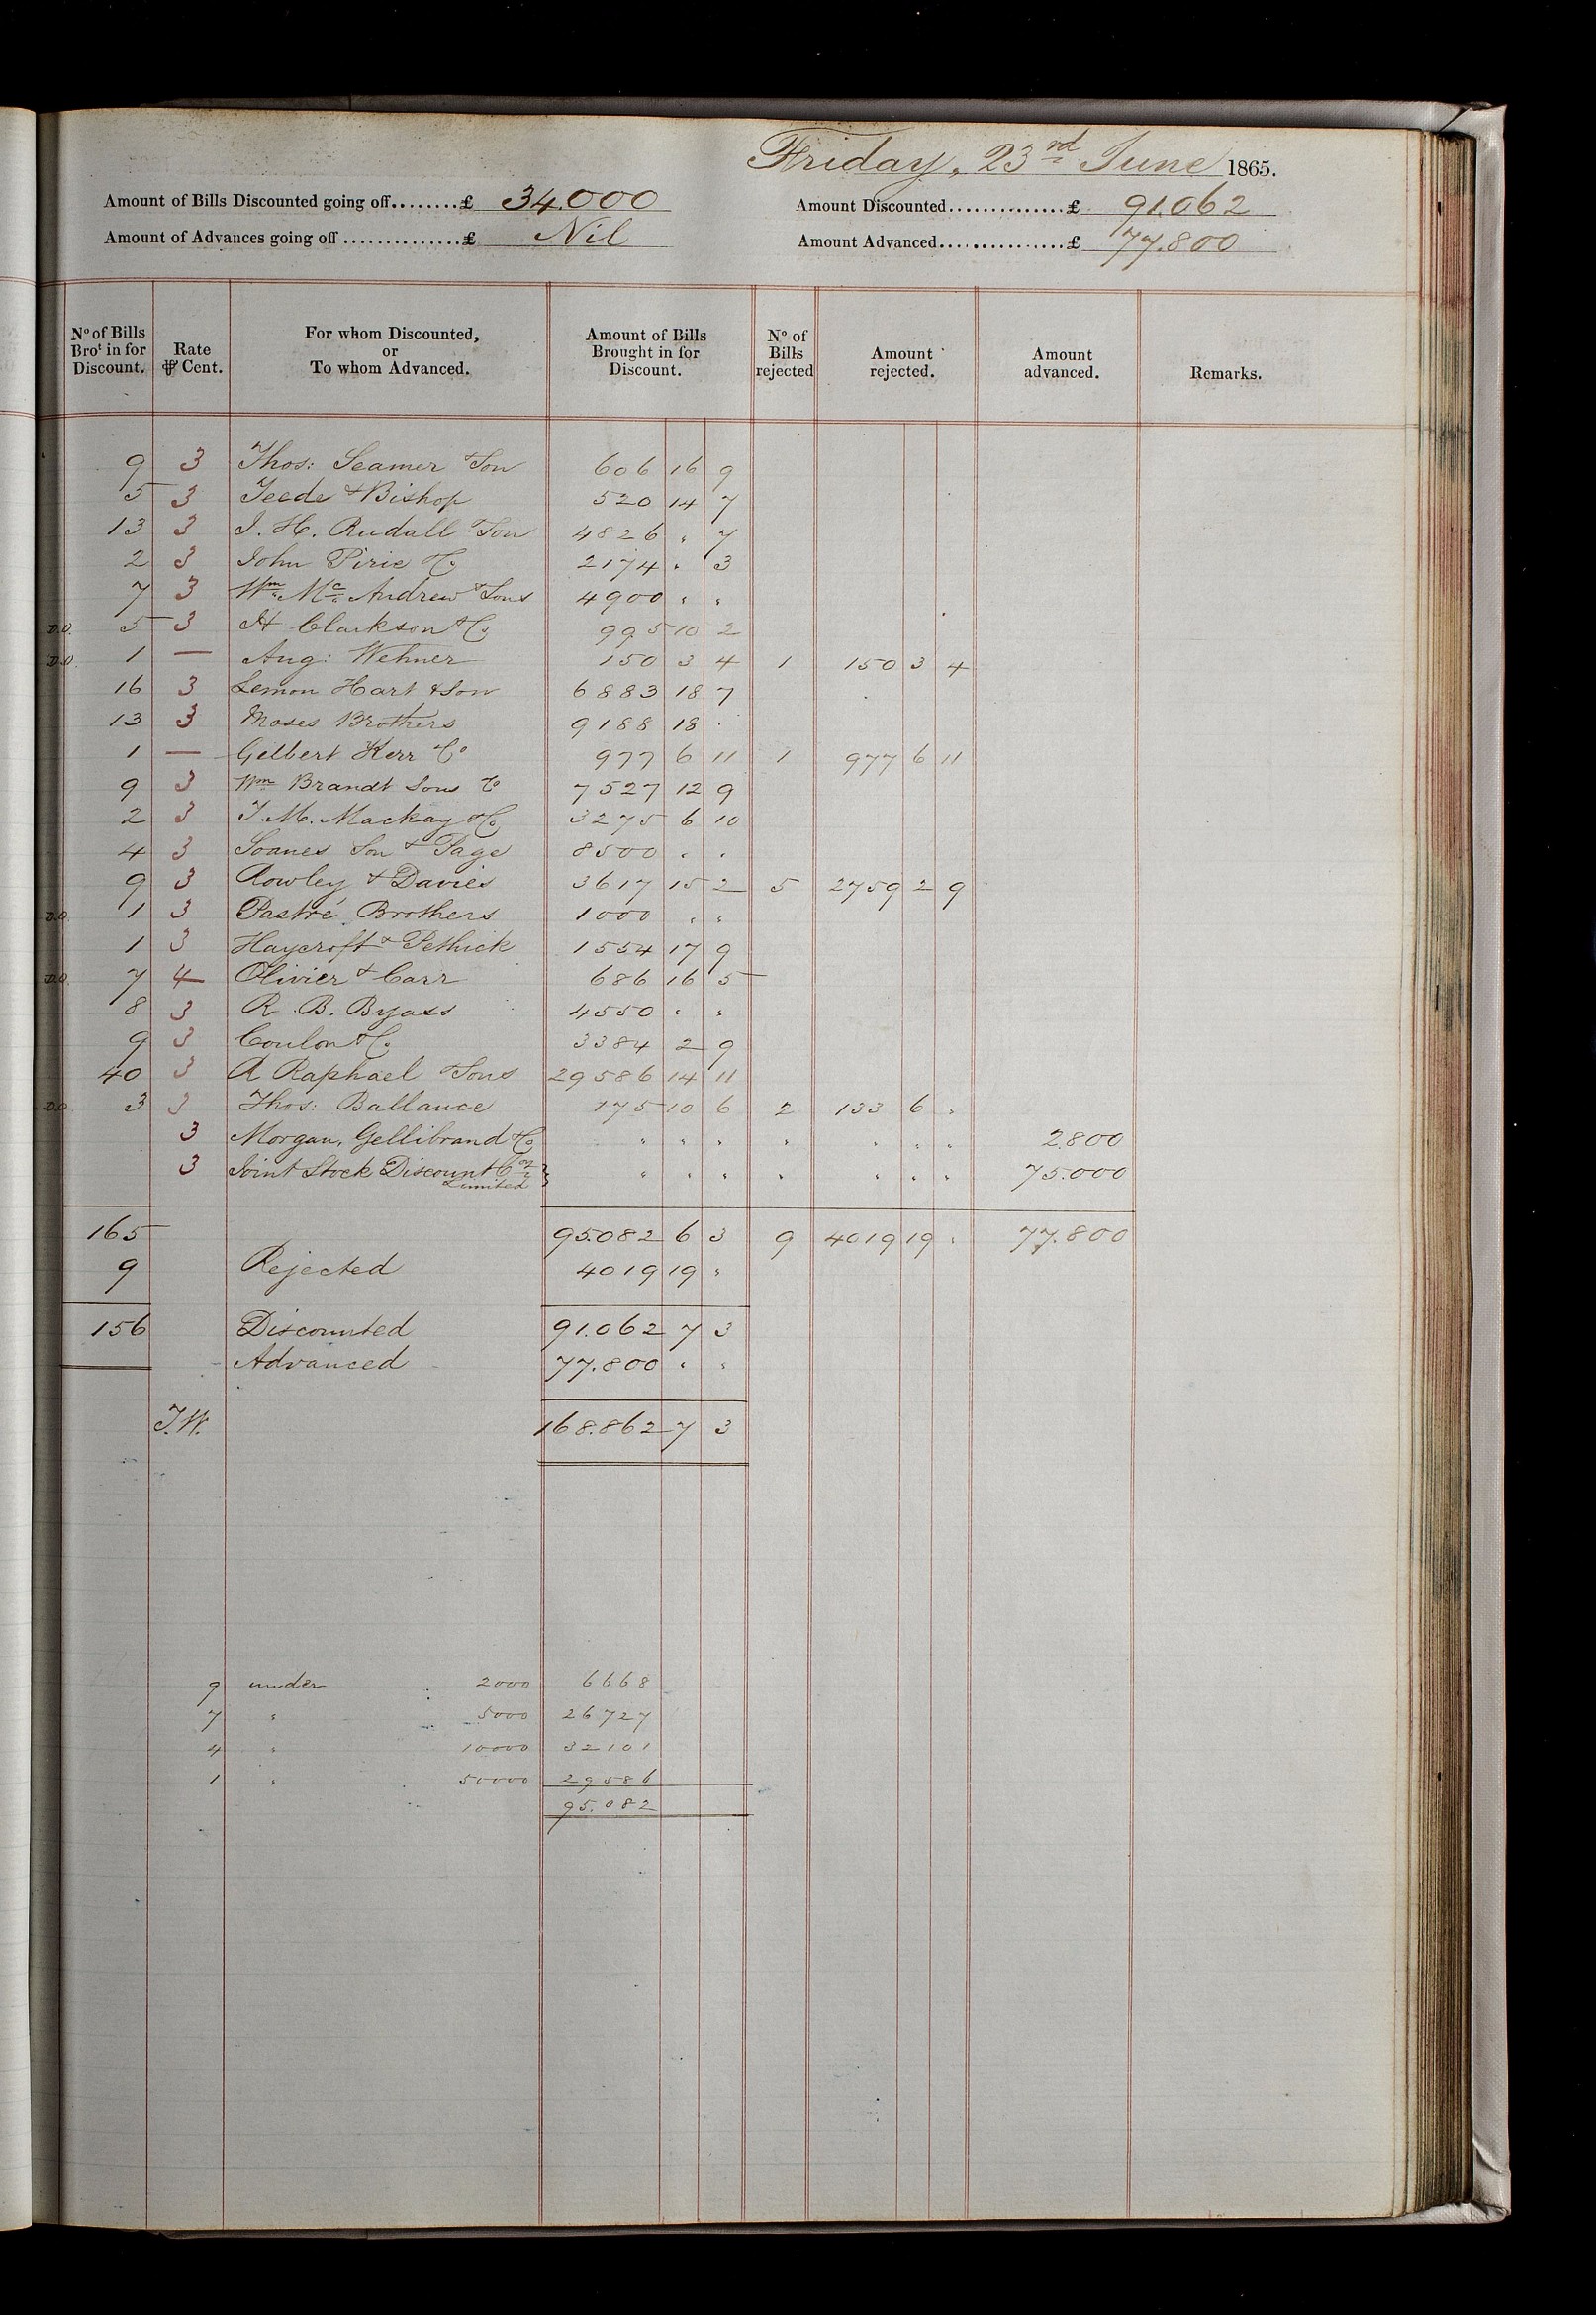 Friday, 23rd June 1865.
Amount of Bills Discounted going off........£ 34.000
Amount Discounted..............£ 91.062
Amount of Advances going off..............£ Nil
Amount Advanced................£ 77.800
No of Bills Brot in for Discount. Rate ⅌ Cent. For whom Discounted, or To whom Advanced. Amount of Bills Brought in for Discount. No of Bills rejected Amount rejected. Amount advanced. Remarks.
9 3 Thos: Seamer & Son 606 16 9
5 3 Teede & Bishop 520 14 7
13 3 J. H. Rudall & Son 4826 " 7
2 3 John Pirie & Co 2174 " 3
7 3 Wm Mc Andrew & Sons 4900 " "
D.O. 5 3 H Clarkson & Co 995 10 2
D.O. 1 — Aug: Wehner 150 3 4 1 150 3 4
16 3 Lemon Hart & Son 6883 18 7
13 3 Moses Brothers 9188 18 "
1 — Gelbert Kerr & Co 977 6 11 1 977 6 11
9 3 Wm Brandt Sons & Co 7527 12 9
2 3 T. M. Mackay & Co 3275 6 10
4 3 Soanes Son & Page 8500 " "
9 3 Rowley & Davies 3617 15 2 5 2759 2 9
D.O. 1 3 Pastré Brothers 1000 " "
1 3 Haycroft & Pethick 1554 17 9
D.O. 7 4 Olivier & Carr 686 16 5
8 3 R. B. Byass 4550 " "
9 3 Coulon & Co 3384 2 9
40 3 R Raphael & Sons 29586 14 11
D.O. 3 3 Thos: Ballance 175 10 6 2 133 6 "
3 Morgan, Gellibrand & Co " " " " " " " 2.800
3 Joint Stock Discount Coy Limited } " " " " " " " 75.000
165 95.082 6 3 9 4019 19 " 77.800
9 Rejected 4019 19 "
156 Discounted 91.062 7 3
Advanced 77.800 " "
J.W. 168.862 7 3
9 under 2000 6668
7 " 5000 26727
4 " 10000 32101
1 " 50000 29586
95.082